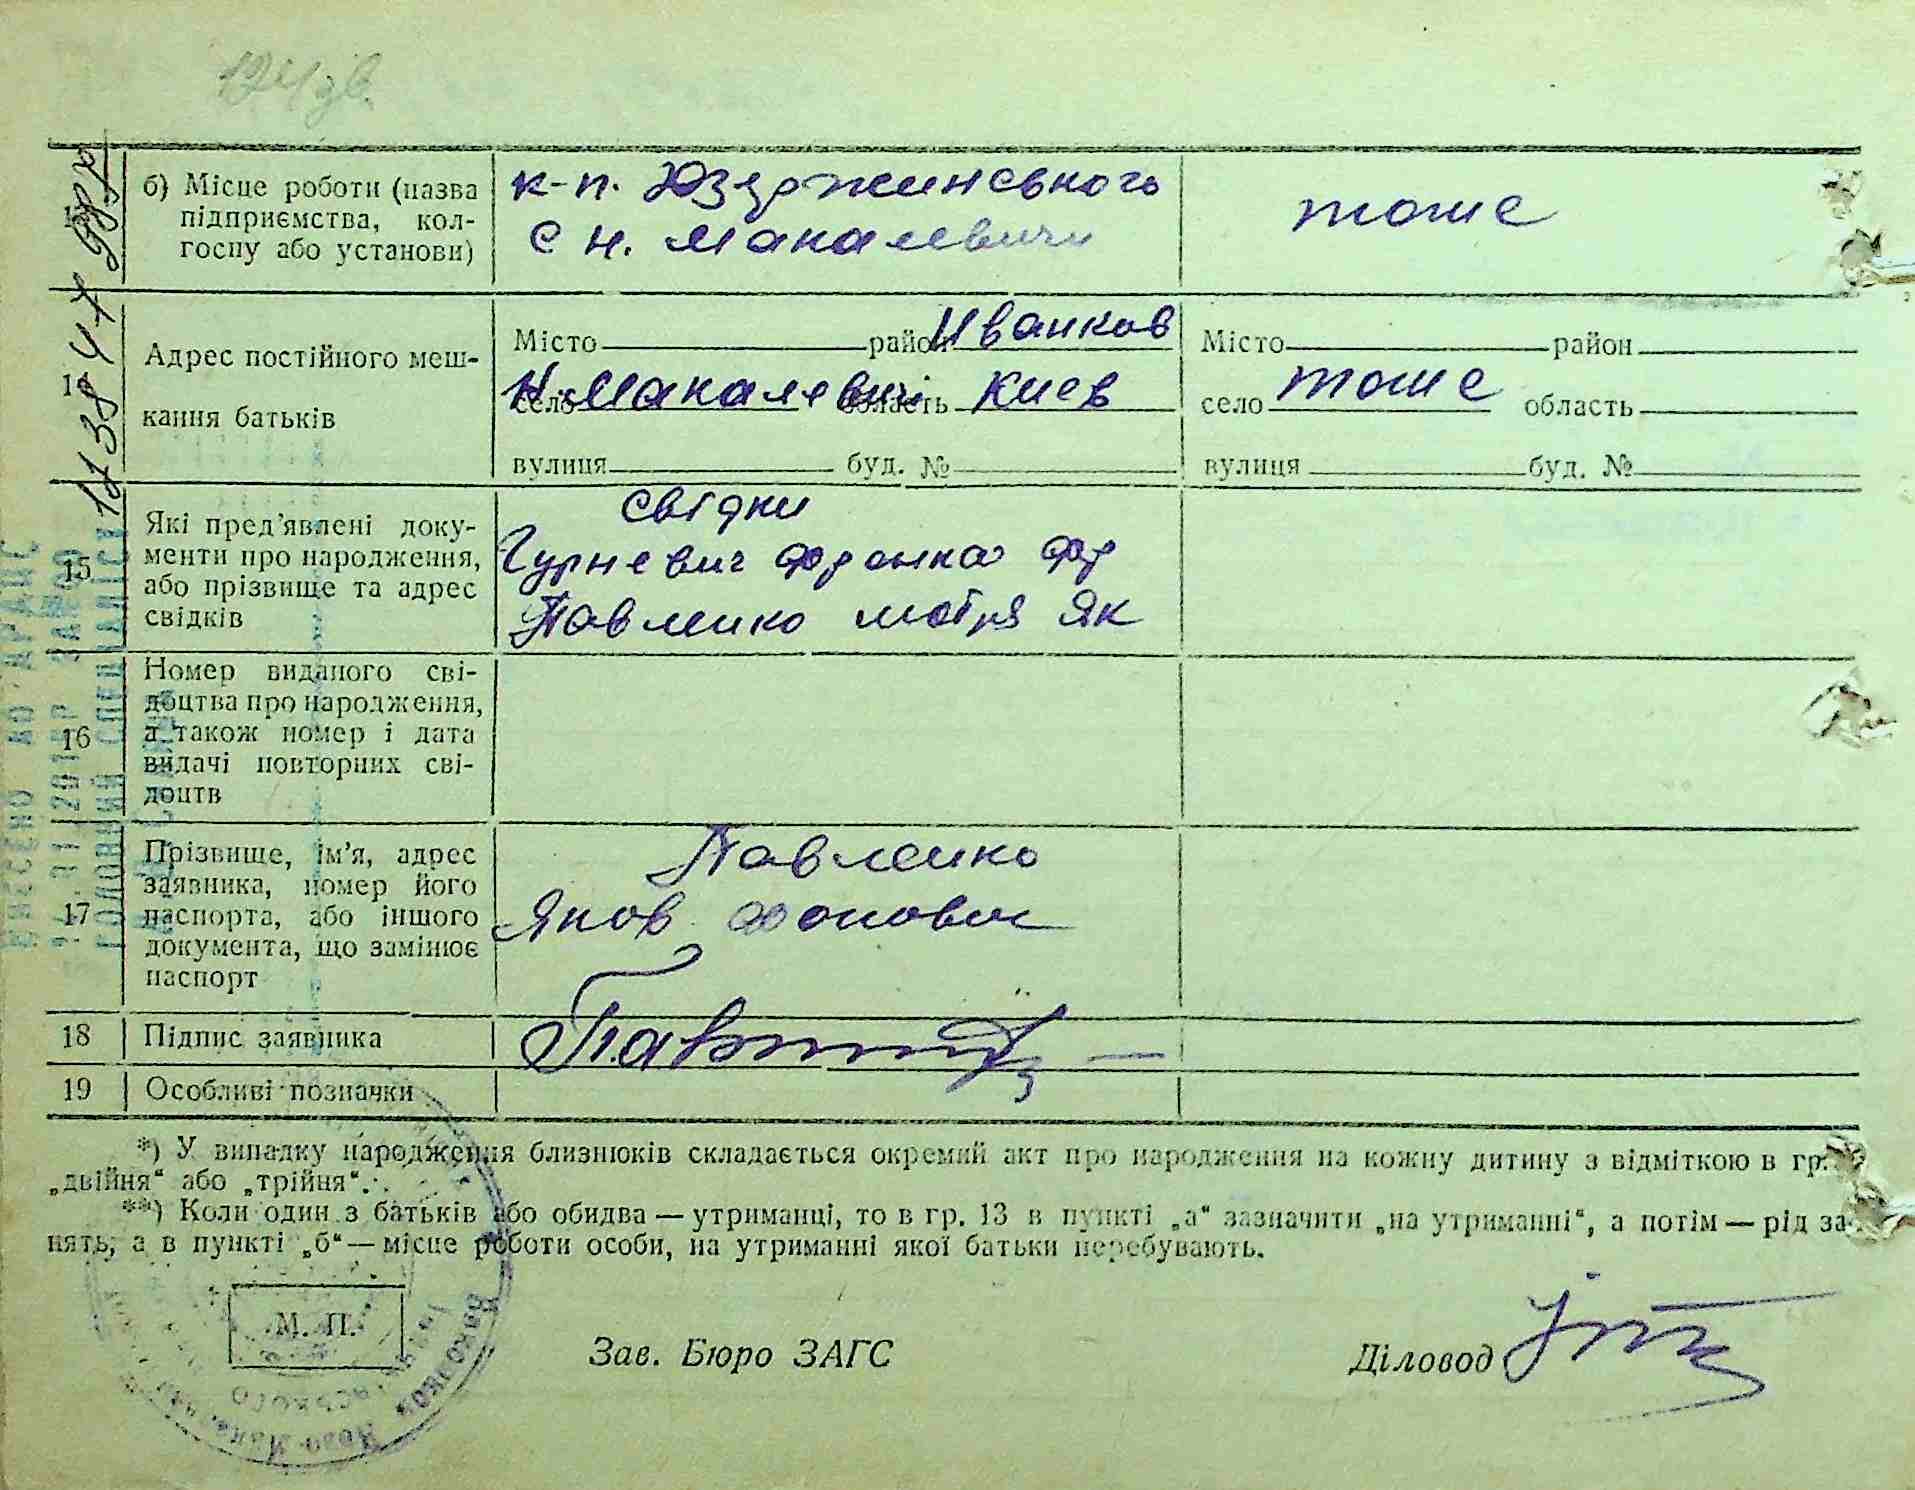 б) Місце роботи (назва
підприємства, кол-
госпу або установи)
к-п. Дзержинського
с Н. Макалевичи
тоже
14
Адрес постійного меш-
кання батьків
Місто район Иванков
село Н. Макалевичі область Киев
вулиця буд. №
Місто район
село тоже область
вулиця буд. №
15
Які пред'явлені доку-
менти про народження,
або прізвище та адрес
свідків
свідки
Гурневич
Павленко мотря Як
16
Номер виданого сві-
доцтва про народження,
а також номер і дата
видачі повторних сві-
доцтв
17
Прізвище, ім'я, адрес
заявника, номер його
паспорта, або іншого
документа, що замінює
паспорт
Павленко
Яков
18
Підпис заявника
19
Особливі позначки
*) У випадку народження близнюків складається окремий акт про народження на кожну дитину з відміткою в гр.
„двійня“ або „трійня“.
**) Коли один з батьків або обидва — утриманці, то в гр. 13 в пункті „а“ зазначити „на утриманні“, а потім — рід за-
нять, а в пункті „б“ — місце роботи особи, на утриманні якої батьки перебувають.
М. П.
Зав. Бюро ЗАГС
Діловод